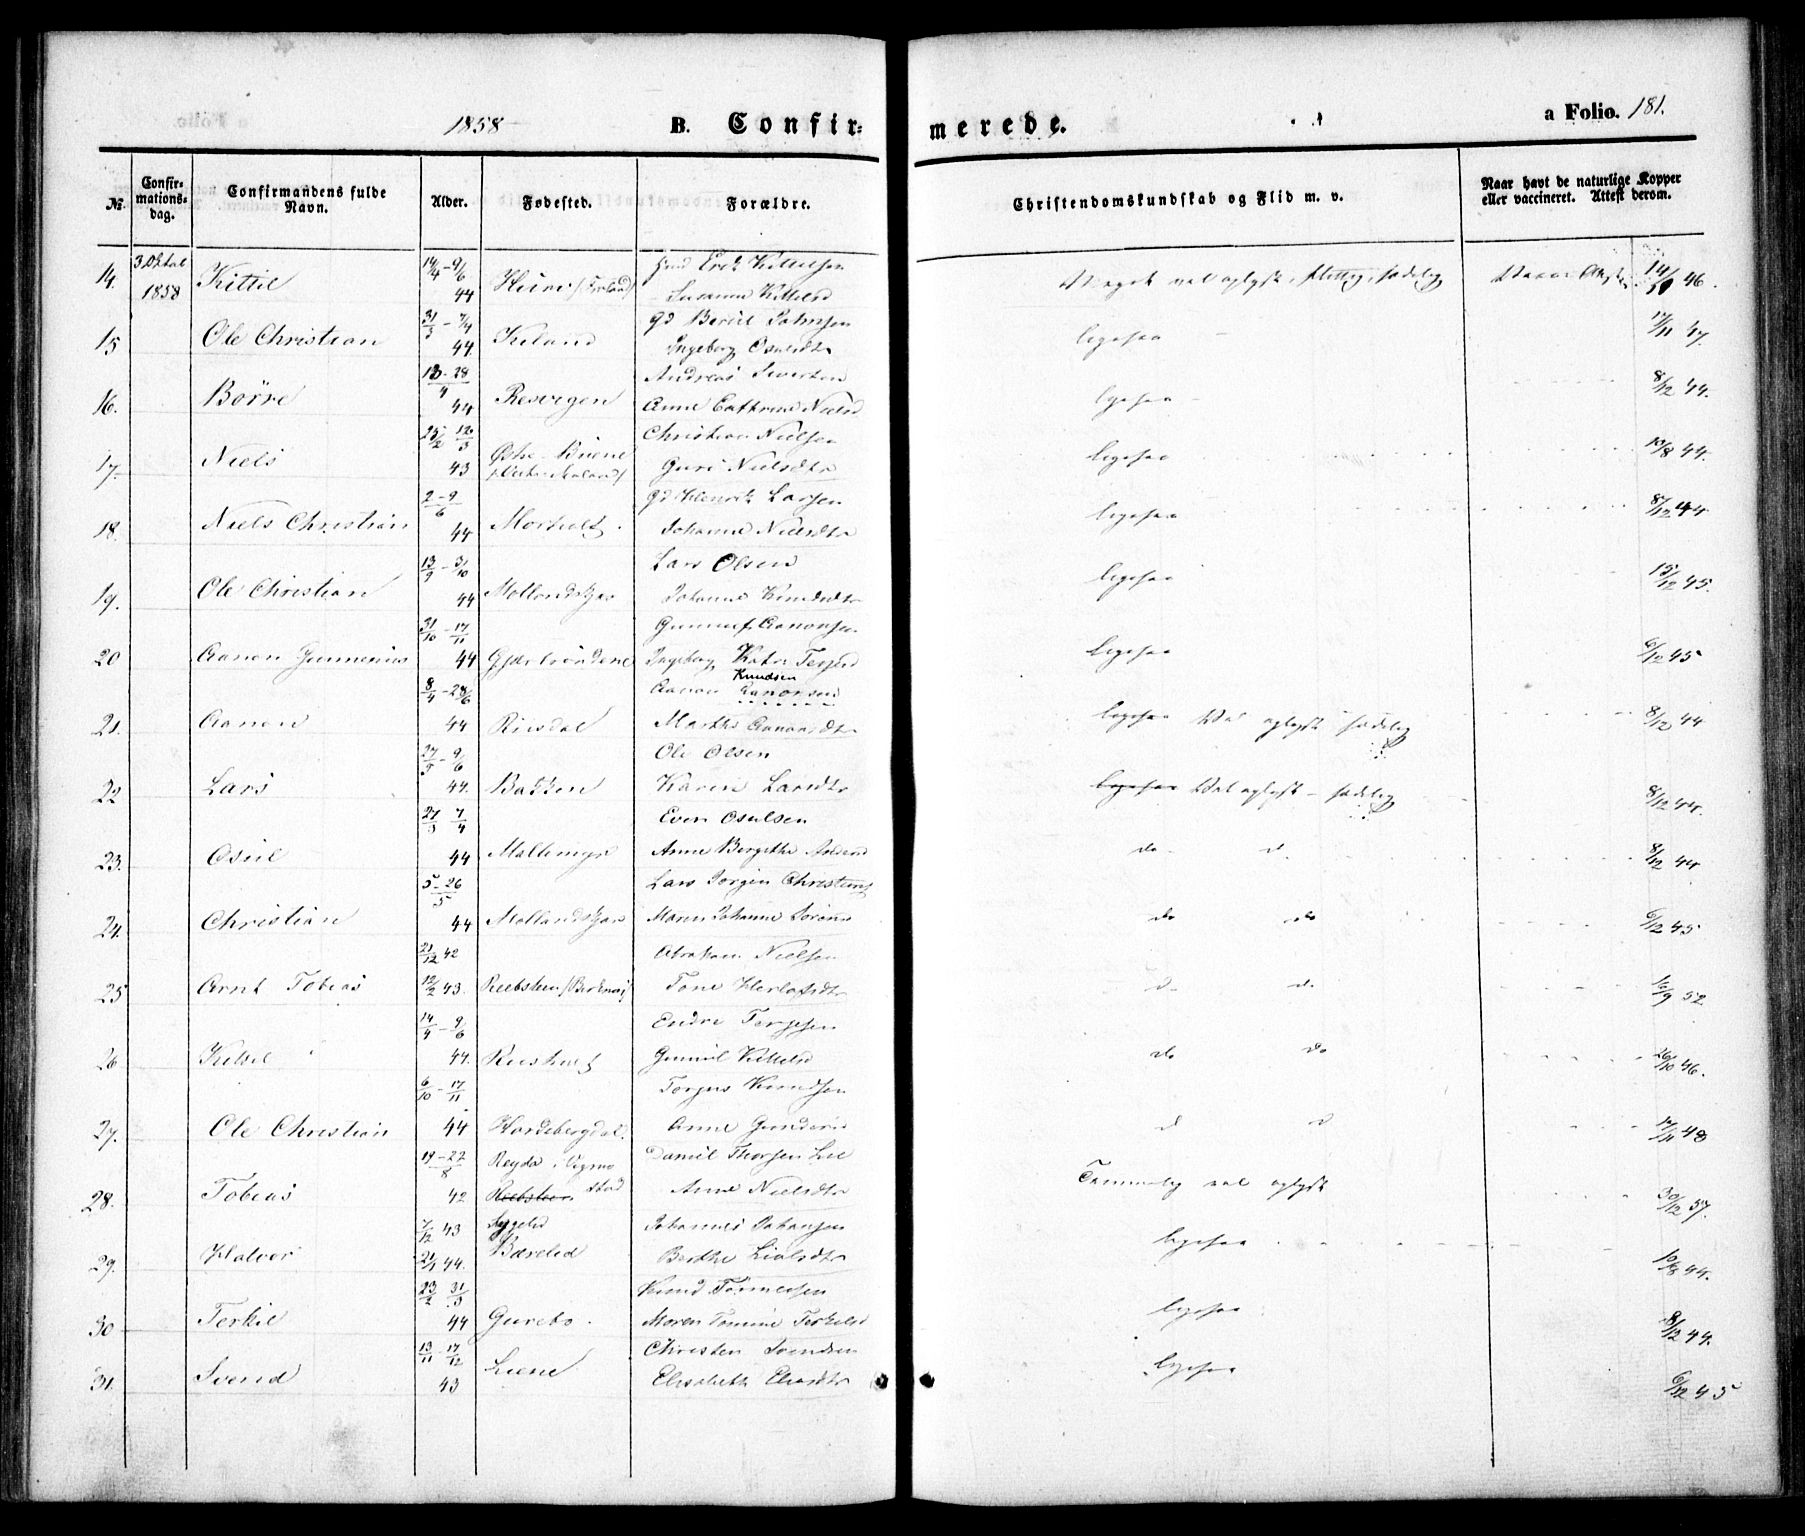 1858 B. Confirmerede. a Folio. 181.
№. Confirmationsdag. Confirmandens fulde Navn. Alder. Fødested. Forældre. Christendomskundskab og Flid m. v. Naar havt de naturlige Kopper eller vaccineret. Attest derom.
14. 3 Oktob 1858 Kittil 14/4 - 9/6 44 Erik Kittelsen
Susanne Kittelsd 14/ 46.
15 Ole Christian 31/3 - 7/4 44. Gd Beruil Johnsen
Ingeborg Osulsdtr ligesaa 17/11 47.
16. Børre 13 - 28/4 44 Resvigen Andreas Sivertsen
Anne Cathrine Nielsd ligesaa 8/12 44.
17. Niels 25/2 12/3 43 Christian Nielsen
Guri Nielsdtr ligesaa 10/8 44.
18. Niels Christian 2 - 9/6 44 Morholt. Gd Henrik Larsen
Johanne Nielsdtr ligesaa 8/12 44
19. Ole Christian 13/9 - 31/10 44 Mollandskjær Lars Olsen
Johanne Knudsdtr ligesaa 15/12 45.
20 Aanon Gunnenius 31/10 - 17/11 44 Gjærbrøndene Gunnuf Aanonsen
Ingeborg Katr. Terjesd ligesaa 6/12 45
21. Aanon 8/4 - 28/6 44 Riisdal Aanon Knudsen Aanonsen
Marthe Aanonsdtr ligesaa Vel oplyst sædelig 8/12 44
22 Lars 27/5 - 9/6 44. Bakken Ole Olsen
Karen Larsdtr ligesaa Vel oplyst - sædelig 8/12 44.
23. Osul 27/3 7/4 44 Mollemyr Even Osulsen
Anne Bergithe Anders do d. 8/12 44
24. Christian 5 - 26/5 44 Mollandskjær Lars Jørgen Christens
Maren Johanne Sørens do do 6/12 45
25 Arnt Tobias 21/12 42 12/2 43. Reebsteen Abraham Nielsen
Tone Herlofsdtr d. d. 16/9 52
26 Kittil 14/4 - 9/6 44. Riisholt Endre Terjesen
Gunnil Kittelsd do do 26/10 46.
27. Ole Christian 6/10 - 17/11 44 Hordebergdal. Torjus Knudsen
Anne Gundersd d d 17/11 48
28. Tobias 19 - 22/8 42 Reebsteen Daniel Thorsen Lie
Anne Nielsdtr Temmelig vel oplyst 30/12 57.
29. Halvor 7/12 43 21/1 44. Bærelid Johannes Johansen
Berthe Livlsdtr ligesaa 10/8 44.
30 Terkil 23/2 31/3 44 Gurebo. Knud Tormodsen
Maren Tomine Terkelsd ligesaa 8/12 44.
31. Svend 13/11 - 17/12 43 Liene Christen Svendsen
Elisabeth Eliasdtr ligesaa 6/12 45